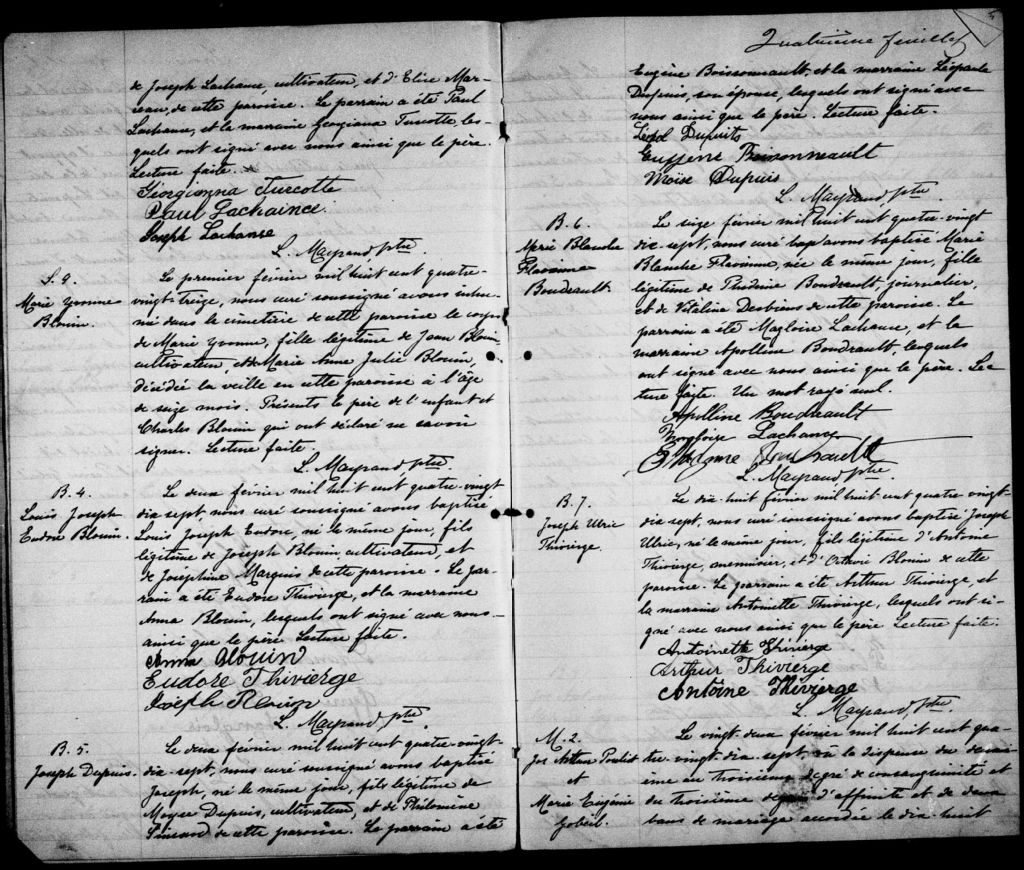 de Joseph Lachance, cultivateur, et d'Elise Mar-
ceau, de cette paroisse. Le parrain a été Paul
Lachance, et la marraine Georgiana Turcotte, les-
quels ont signé avec nous ainsi que le père.
Lecture faite.
Georgianna Turcotte
Paul Lachaince
Joseph Lachanse
L. Mayrand ptre
S. 9.
Marie Yvonne
Blouin.
Le premier février mil huit cent quatre-
vingt-treize, nous curé soussigné avons inhu-
mé dans le cimetière de cette paroisse le corps
de Marie Yvonne, fille légitime de Jean Blouin
cultivateur, et de Marie Anne Julie Blouin,
décédée la veille en cette paroisse à l'âge
de seize mois. Présents le père de l'enfant et
Charles Blouin qui ont déclaré ne savoir
signer. Lecture faite.
L. Mayrand ptre.
B. 4.
Louis Joseph
Eudore Blouin.
Le deux février mil huit cent quatre-vingt
dix sept, nous curé soussigné avons baptisé
Louis Joseph Eudore, né le même jour, fils
légitime de Joseph Blouin, cultivateur, et
de Joséphine Marquis de cette paroisse. Le par-
rain a été Eudore Thivierge, et la marraine
Anna Blouin, lesquels ont signé avec nous
ainsi que le père. Lecture faite.
Anna Blouin
Eudore Thivierge
Joseph Blouin
L. Mayrand ptre.
B. 5.
Joseph Dupuis.
Le deux février mil huit cent quatre-vingt-
dix-sept, nous curé soussigné avons baptisé
Joseph, né le même jour, fils légitime de
Moyse Dupuis, cultivateur, et de Philomène
Simard de cette paroisse. Le parrain a été
Quatrième feuillet
Eugène Boissonnault, et la marraine Léopada
Dupuis, son épouse, lesquels ont signé avec
nous ainsi que le père. Lecture faite.
Dupuits
Eugjene Boisonneault
Moïse Dupuis
L. Mayrand, ptre
B. 6.
Marie Blanche
Flavienne
Boudreault.
Le seize février mil huit cent quatre-vingt
dix sept, nous curé avons baptisé Marie
Blanche Flavienne, née le même jour, fille
légitime de Boudreault, journalier,
et de Vitaline Desbiens de cette paroisse. Le
parrain a été Magloire Lachance, et la
marraine Apolline Boudrault, lesquels
ont signé avec nous ainsi que le père. Lec
ture faite. Un mot rayé nul.
Apolline Boudreault
Magloire Lachance
L. Mayrand ptre
B. 7.
Joseph Ulric
Thivierge.
Le dix huit février mil huit cent quatre vingt-
dix sept, nous curé soussigné avons baptisé Joseph
Ulric, né le même jour, fils légitime d'Antoine
Thivierge, menuisier, et d'Octavie Blouin de cette
paroisse. Le parrain a été Arthur Thivierge, et
la marraine Antoinette Thivierge, lesquels ont si-
gné avec nous ainsi que le père. Lecture faite.
Antoinette Thivierge
Arthur Thivierge
Antoine Thivierge
L. Mayrand, ptre.
M. 2.
Jos Arthur Pouliot
et
Marie Eugénie
Gobeil.
Le vingt deux février mil huit cent qua-
tre-vingt dix sept vu la dispense du deuxi-
ème au troisième degré de consanguinité et
du troisième degré d'affinité et de deux
bans de mariage accordée le dix-huit